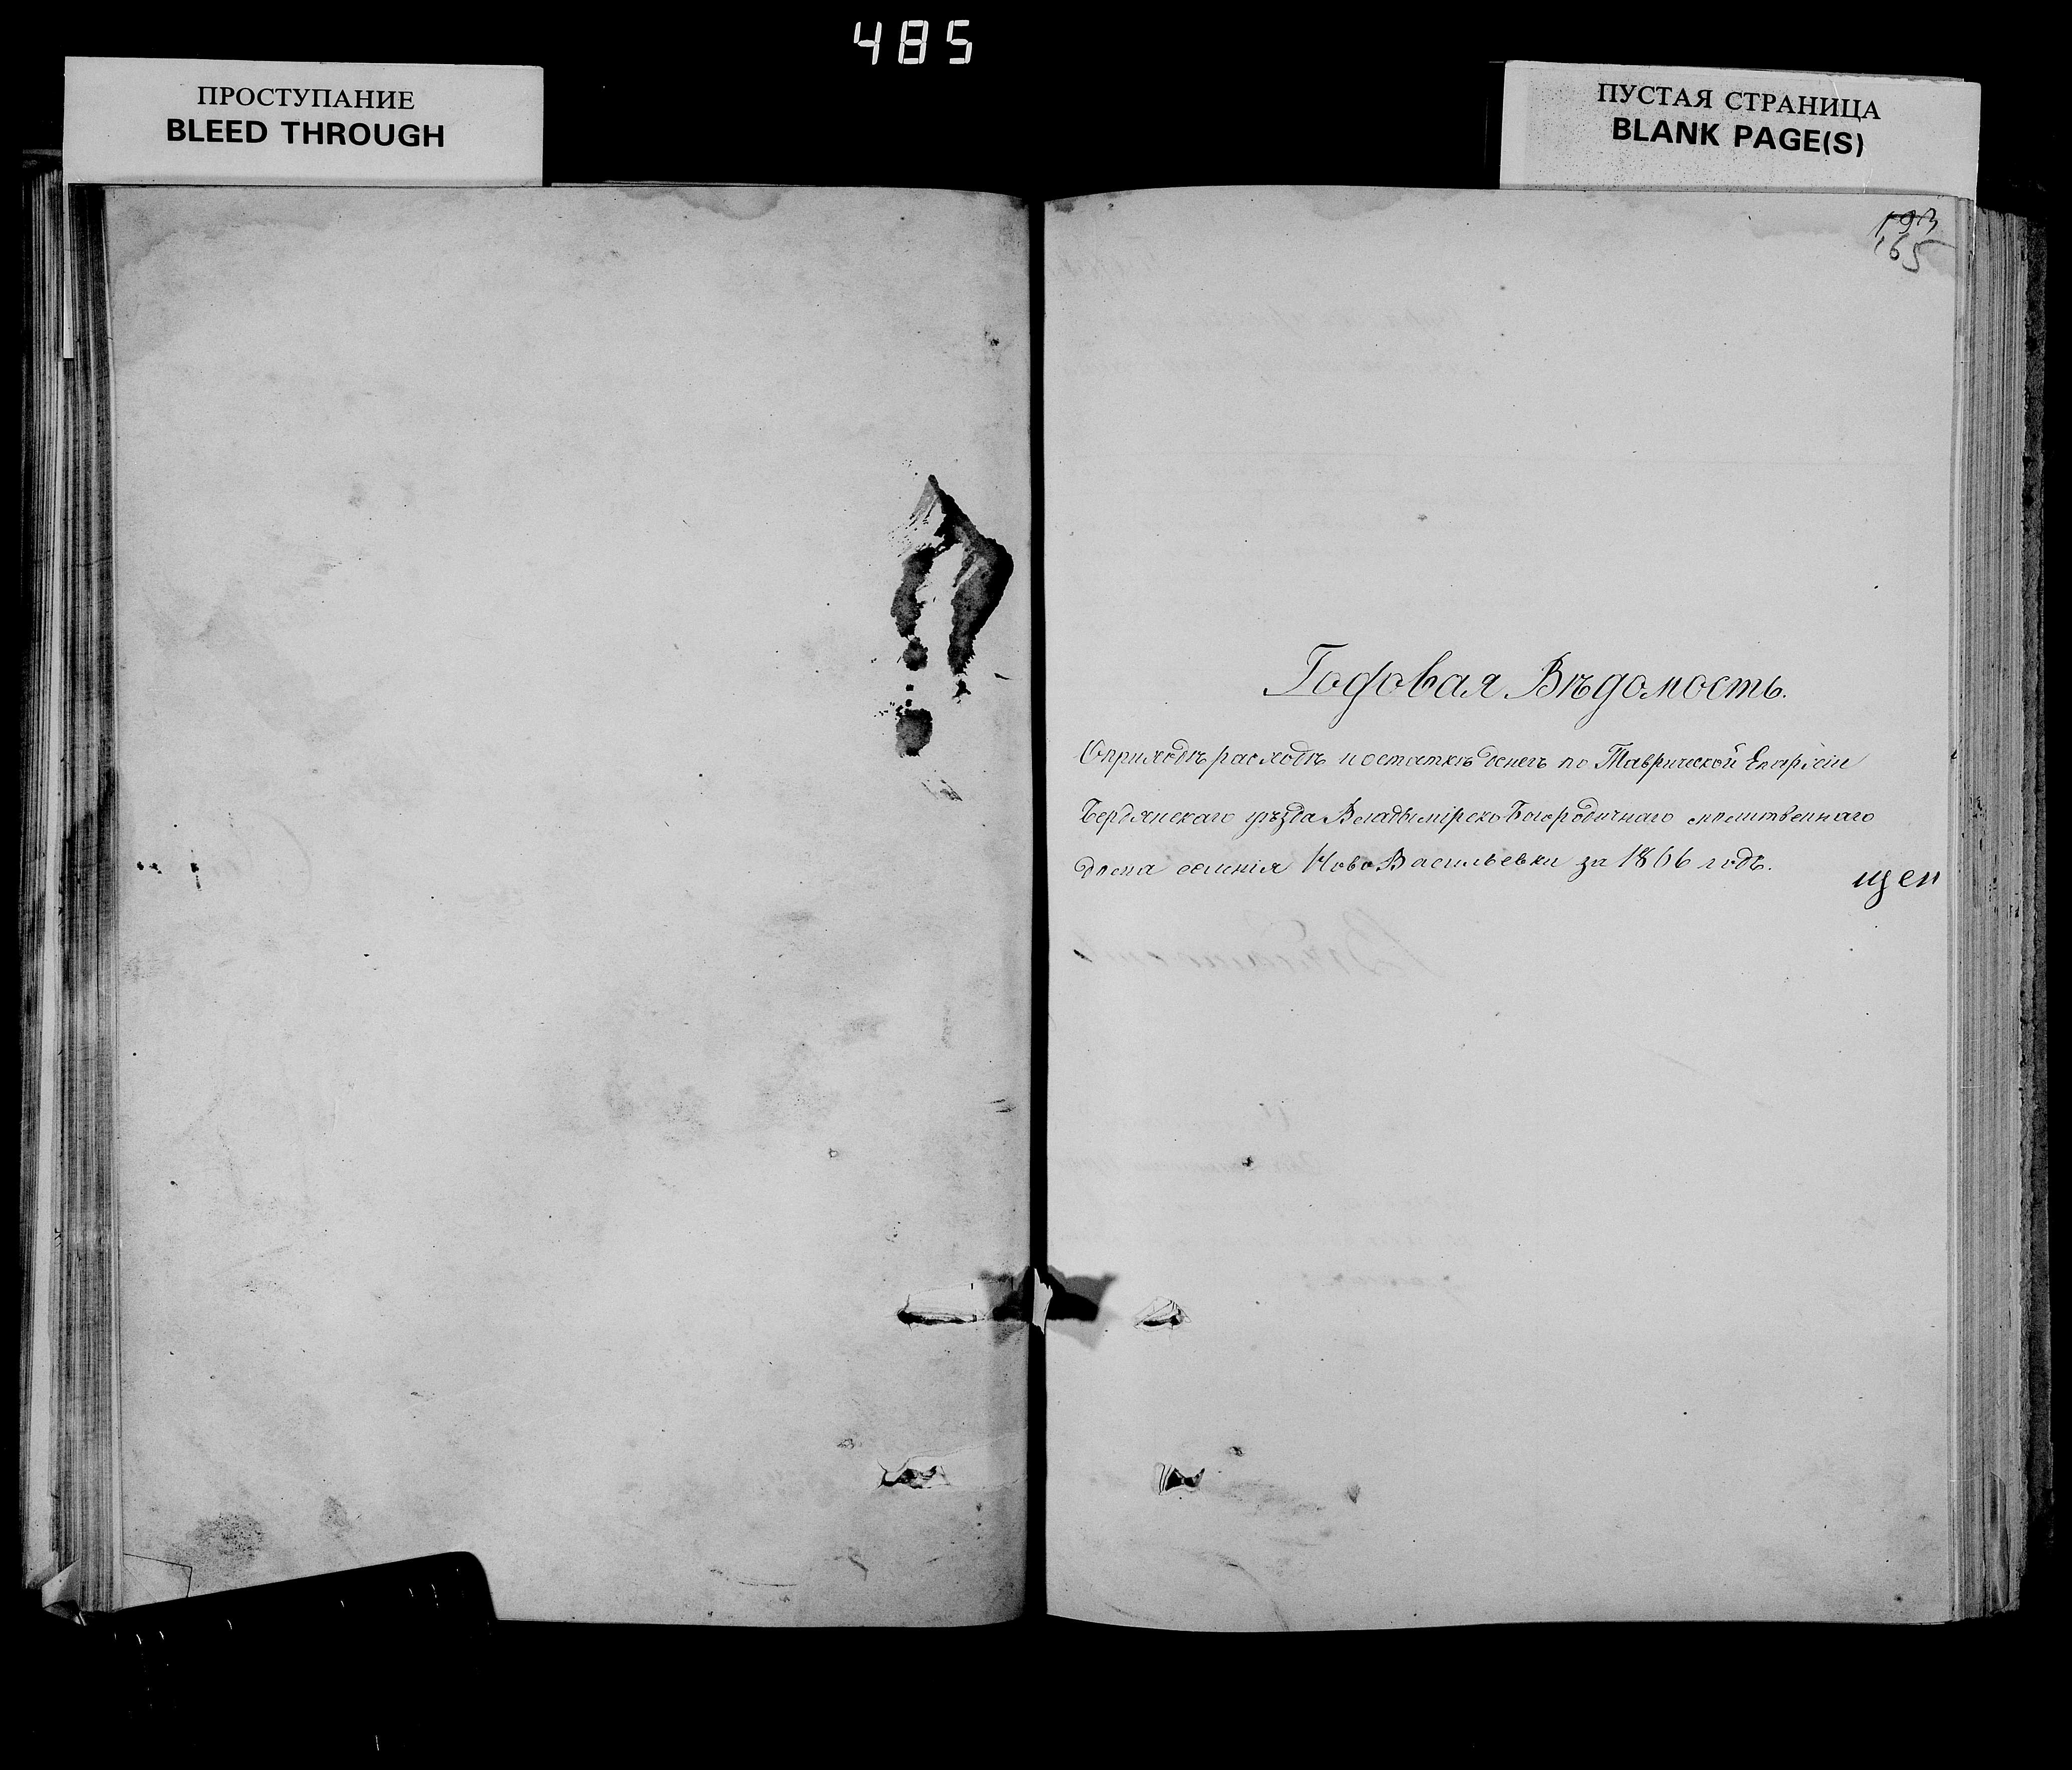 485
ПРОСТУПАНИЕ
BLEED THROUGH
ПУСТАЯ СТРАНИЦА
BLANK PAGE(S)
193
165
Годовая Вѣдомость.
Оприходѣ расходѣ иостаткѣ денегъ по Таврической Епархіи
Бердянскаго уѣзда Владымірско Богородичнаго молитвеннаго
дома селенія Ново Васильевки за 1866 годъ.